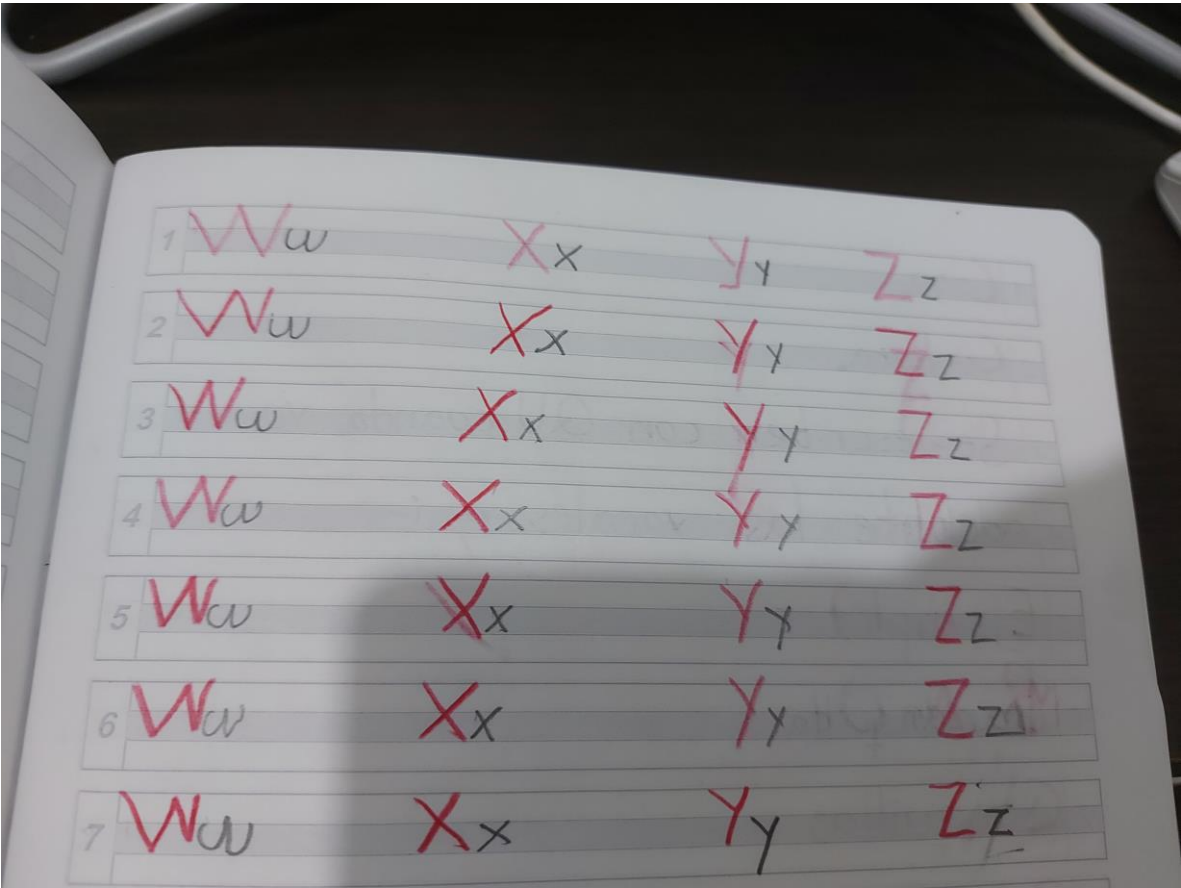 1 Ww Xx Yy Zz
2 Ww Xx Yy Zz
3 Ww Xx Yy Zz
4 Ww Xx Yy Zz
5 Ww Xx Yy Zz
6 Ww Xx Yy Zz
7 Ww Xx Yy Zz